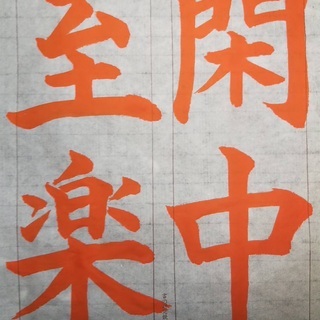 閑中
至楽